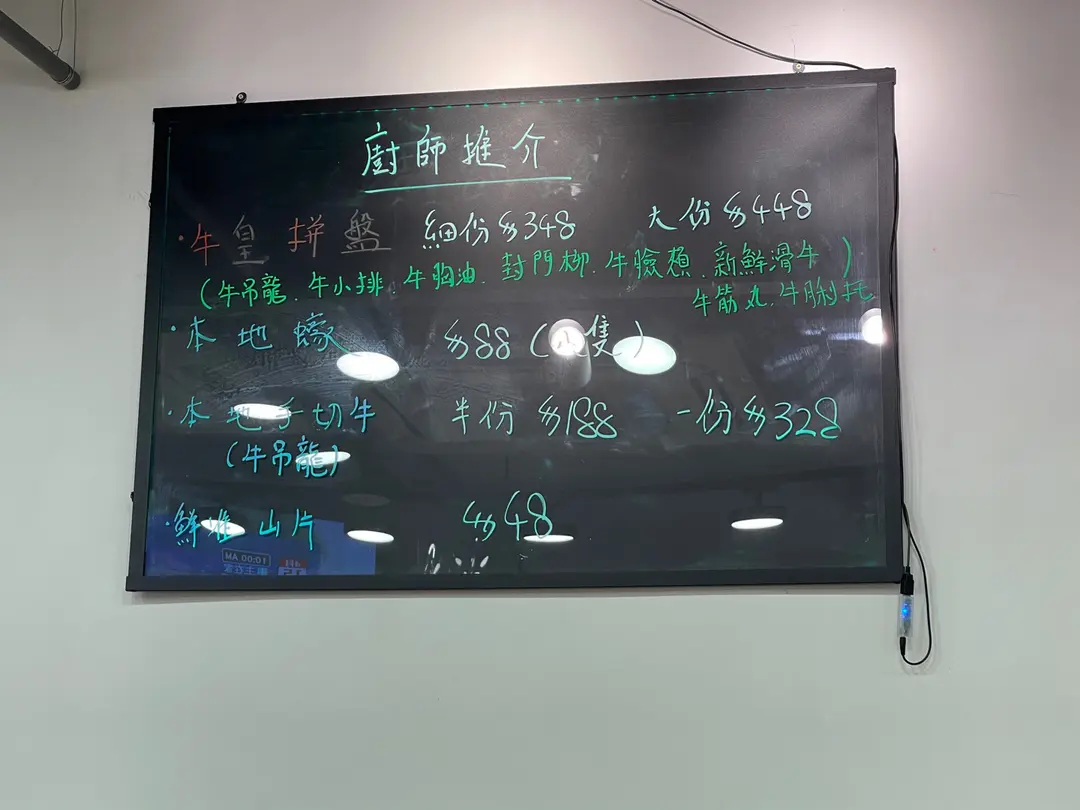 廚師推介
·牛皇拼盤 細份$348 大份$448
(牛吊龍、牛小排、牛胸油、封門柳、牛臉頰、新鮮滑牛)
牛筋丸、牛脷托
·本地蠔 $88(隻)
·本地手切牛 半份$188 一份$328
(牛吊龍)
·鮮淮山片 $48
10:00 AM